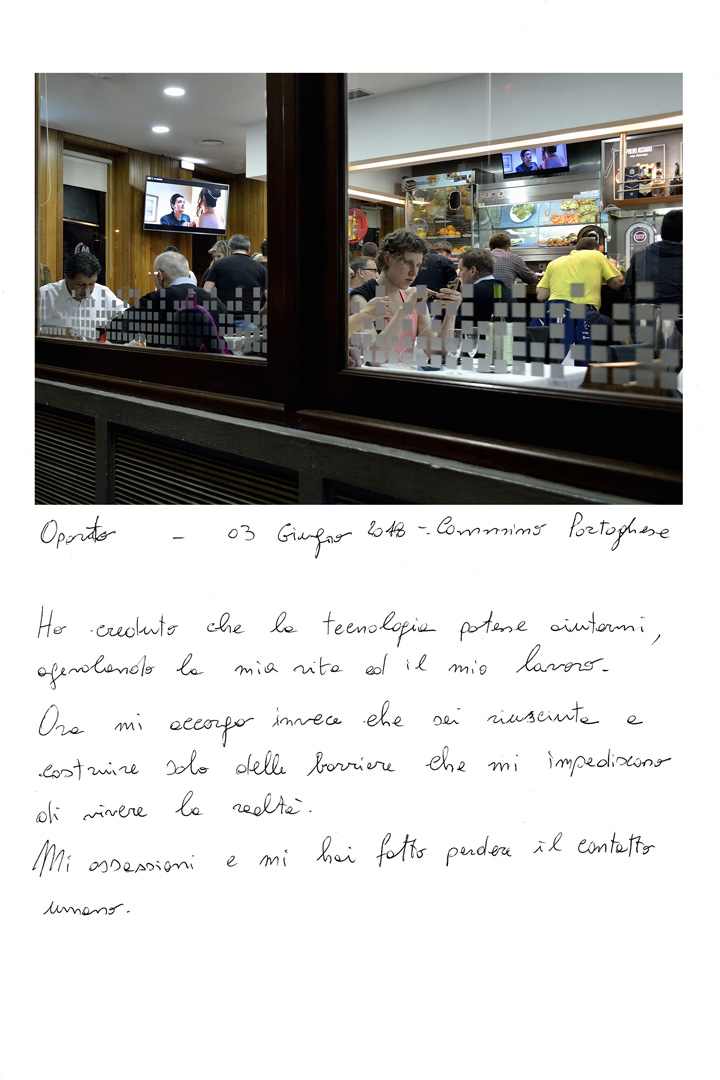 POLVO ASSADO
Oporto - 03 Giugno 2018 - Cammino Portoghese
Ho creduto che la tecnologia potesse aiutarmi,
agevolando la mia vita ed il mio lavoro.
Ora mi accorgo invece che sei riuscita a
costruire solo delle barriere che mi impediscono
di vivere la realtà.
Mi ossessioni e mi hai fatto perdere il contatto
umano.